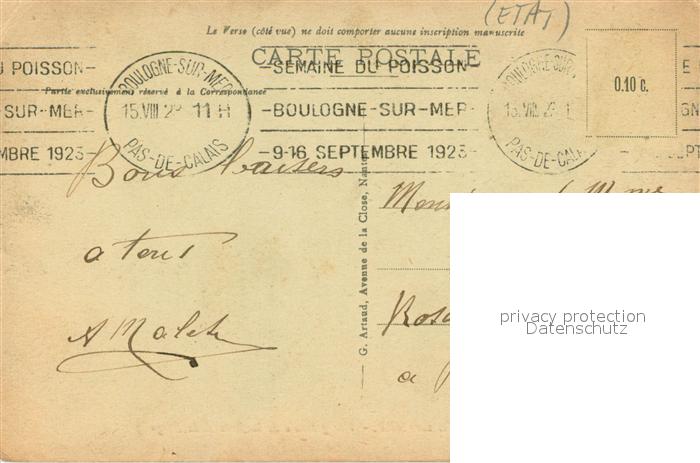 (ETAT)
Le Verso (côté vue) ne doit comporter aucune inscription manuscrite
CARTE POSTALE
Partie exclusivement réservé à la Correspondance
U POISSON-
SUR-MER-
MBRE 1923-
BOULOGNE-SUR-MER
15.VIII 23 11 H
PAS-DE-CALAIS
-SEMAINE DU POISSON-
-BOULOGNE-SUR-MER-
-9-16 SEPTEMBRE 1923-
BOULOGNE-SUR-
15.VIII. 2
PAS-DE-CALA
0.10 c.
SEPT
Bons baisers
a tous
G. Artaud, Avenue de la Close, Nantes
a
privacy protection
Datenschutz